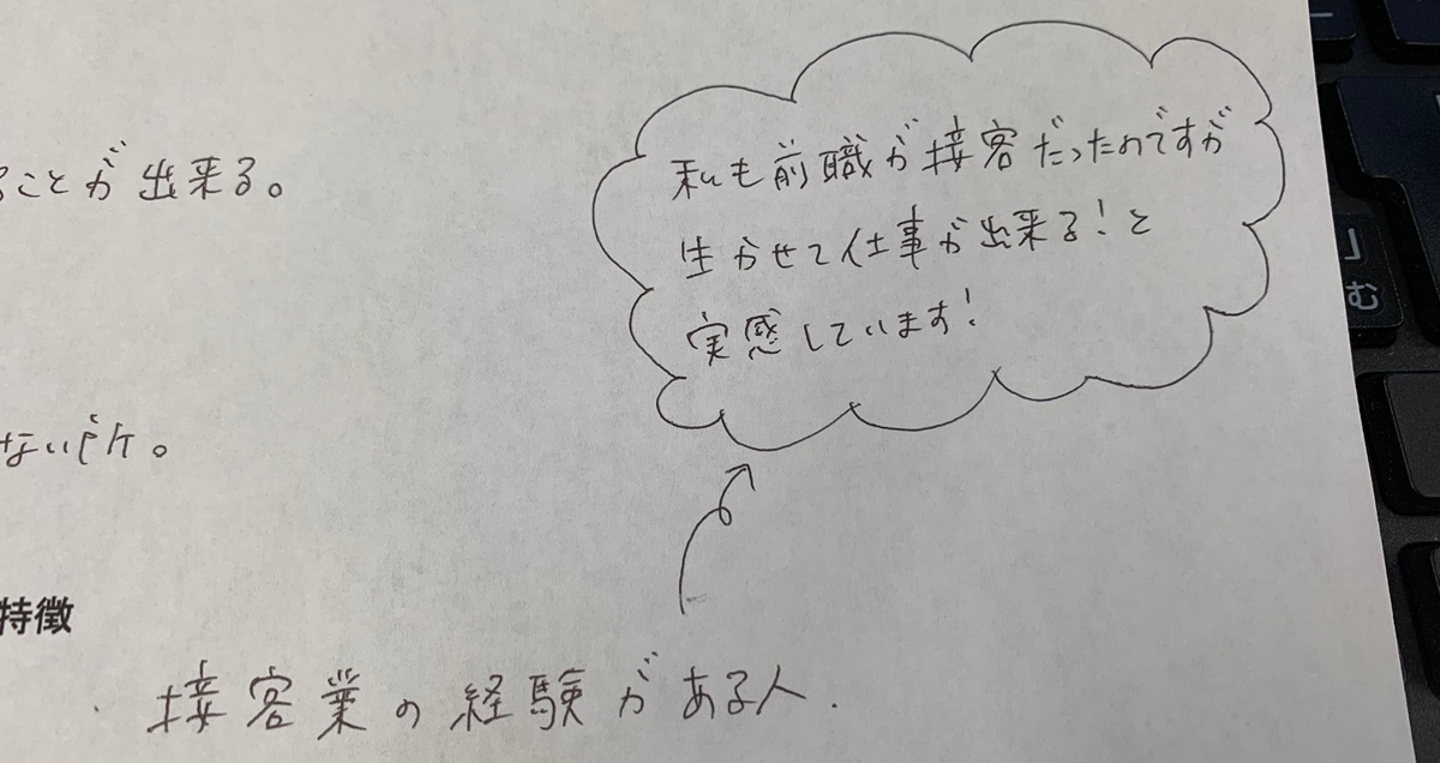 ることが出来る。
私も前職が接客だったのですが
生かせて仕事が出来る!と
実感しています!
ない所。
特徴
・接客業の経験がある人.
」
む